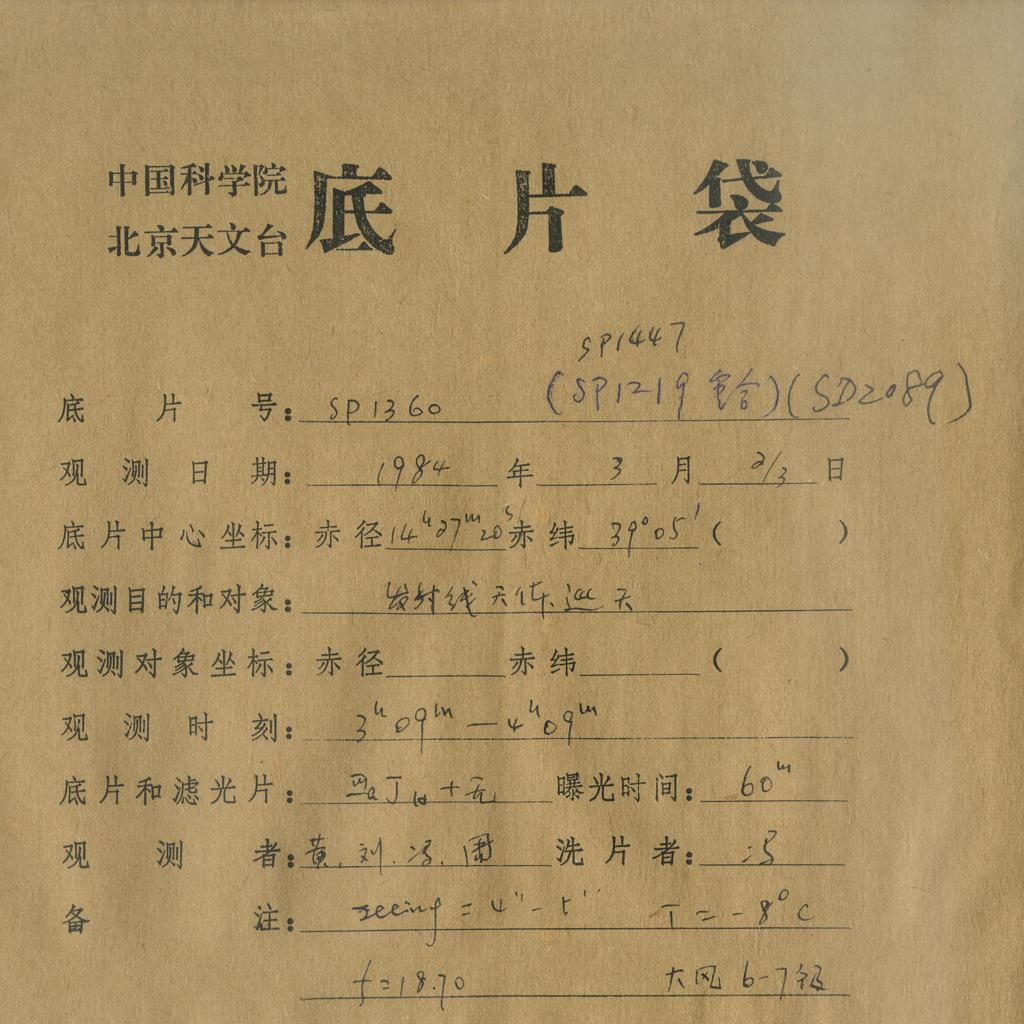 中国科学院
北京天文台
底片袋
SP1447
底片号: SP1360 (SP1219重合)(SD2089)
观测日期: 1984年3月2/3日
底片中心坐标: 赤径14ʰ27ᵐ20ˢ赤纬39°05′( )
观测目的和对象: 发射线天体巡天
观测对象坐标: 赤径 赤纬 ( )
观测时刻: 3ʰ09ᵐ—4ʰ09ᵐ
底片和滤光片: +无 曝光时间: 60ᵐ
观测者: 黄.刘.冯. 洗片者: 冯
备注: seeing=4″-5″ T=-8°C
f=18.70 大风6-7级